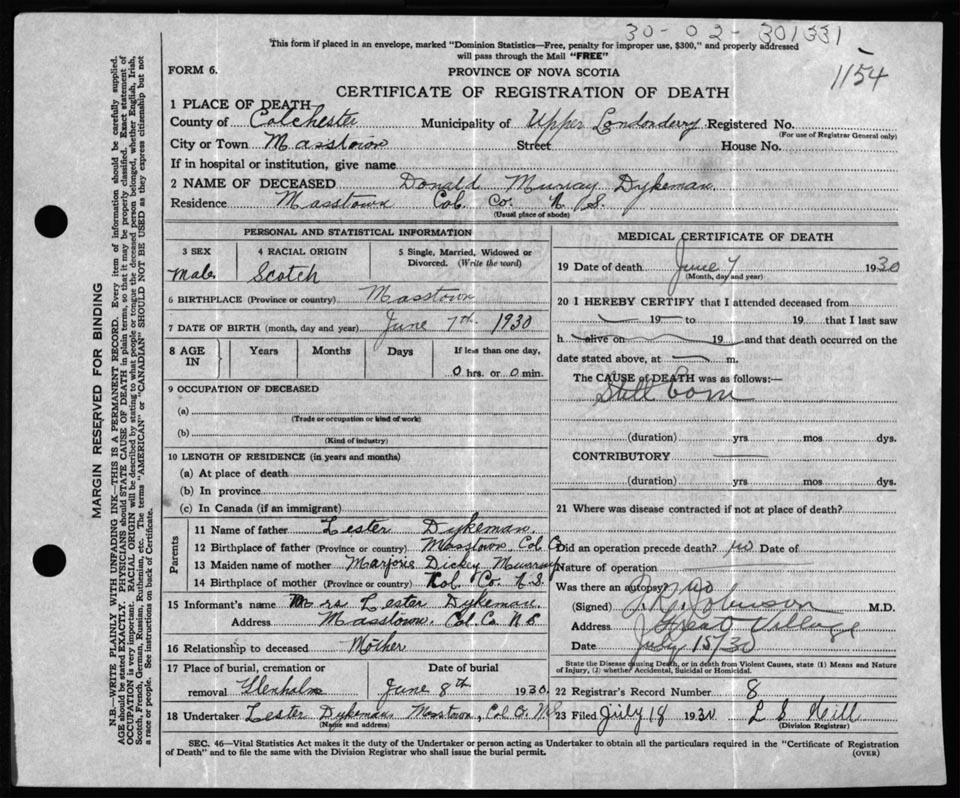 30-02-301331
1154
This form if placed in an envelope, marked "Dominion Statistics—Free, penalty for improper use, $300," and properly addressed
will pass through the Mail "FREE"
FORM 6.
PROVINCE OF NOVA SCOTIA
CERTIFICATE OF REGISTRATION OF DEATH
MARGIN RESERVED FOR BINDING
N.B.—WRITE PLAINLY WITH UNFADING INK—THIS IS A PERMANENT RECORD. Every item of information should be carefully supplied.
AGE should be stated EXACTLY. PHYSICIANS should STATE CAUSE OF DEATH in plain terms, so that it may be properly classified. Exact statement of
OCCUPATION is very important. RACIAL ORIGIN will be described by stating to what people or tongue the deceased person belonged, whether English, Irish,
Scotch, French, German, Russian, Ruthenian, etc. The terms "AMERICAN" or "CANADIAN" SHOULD NOT BE USED as they express citizenship but not
a race or people. See instructions on back of Certificate.
1 PLACE OF DEATH
County of Colchester Municipality of Upper Londonderry Registered No.
(For use of Registrar General only)
City or Town Masstown Street House No.
If in hospital or institution, give name
2 NAME OF DECEASED Donald Murray Dykeman
Residence Masstown Col. Co. N. S.
(Usual place of abode)
PERSONAL AND STATISTICAL INFORMATION
3 SEX 4 RACIAL ORIGIN 5 Single, Married, Widowed or
Divorced. (Write the word)
Male Scotch
6 BIRTHPLACE (Province or country) Masstown
7 DATE OF BIRTH (month, day and year) June 7th 1930
8 AGE IN Years Months Days If less than one day,
0 hrs. or 0 min.
9 OCCUPATION OF DECEASED
(a)
(Trade or occupation or kind of work)
(b)
(Kind of industry)
10 LENGTH OF RESIDENCE (in years and months)
(a) At place of death
(b) In province
(c) In Canada (if an immigrant)
Parents
11 Name of father Lester Dykeman
12 Birthplace of father (Province or country) Masstown, Col. Co
13 Maiden name of mother Marjorie Dickey Murray
14 Birthplace of mother (Province or country) Col. Co. N. S.
15 Informant's name Mrs Lester Dykeman
Address Masstown. Col. Co. N S
16 Relationship to deceased Mother
17 Place of burial, cremation or Date of burial
removal Glenholm June 8th 1930
18 Undertaker Lester Dykeman Masstown, Col Co. N.S.
(Name and address)
MEDICAL CERTIFICATE OF DEATH
19 Date of death June 7 1930
(Month, day and year)
20 I HEREBY CERTIFY that I attended deceased from
19 to 19 that I last saw
h alive on 19 and that death occurred on the
date stated above, at m.
The CAUSE of DEATH was as follows:—
Still born
(duration) yrs mos dys.
CONTRIBUTORY
(duration) yrs mos dys.
21 Where was disease contracted if not at place of death?
Did an operation precede death? no Date of
Nature of operation
Was there an autopsy? no
(Signed) Johnson M.D.
Address Great Village
Date July 15/30
State the Disease causing Death, or in death from Violent Causes, state (1) Means and Nature
of Injury, (2) whether Accidental, Suicidal or Homicidal.
22 Registrar's Record Number 8
23 Filed July 18 1930 L S Hill
(Division Registrar)
SEC. 46—Vital Statistics Act makes it the duty of the Undertaker or person acting as Undertaker to obtain all the particulars required in the "Certificate of Registration
of Death" and to file the same with the Division Registrar who shall issue the burial permit.
(OVER)